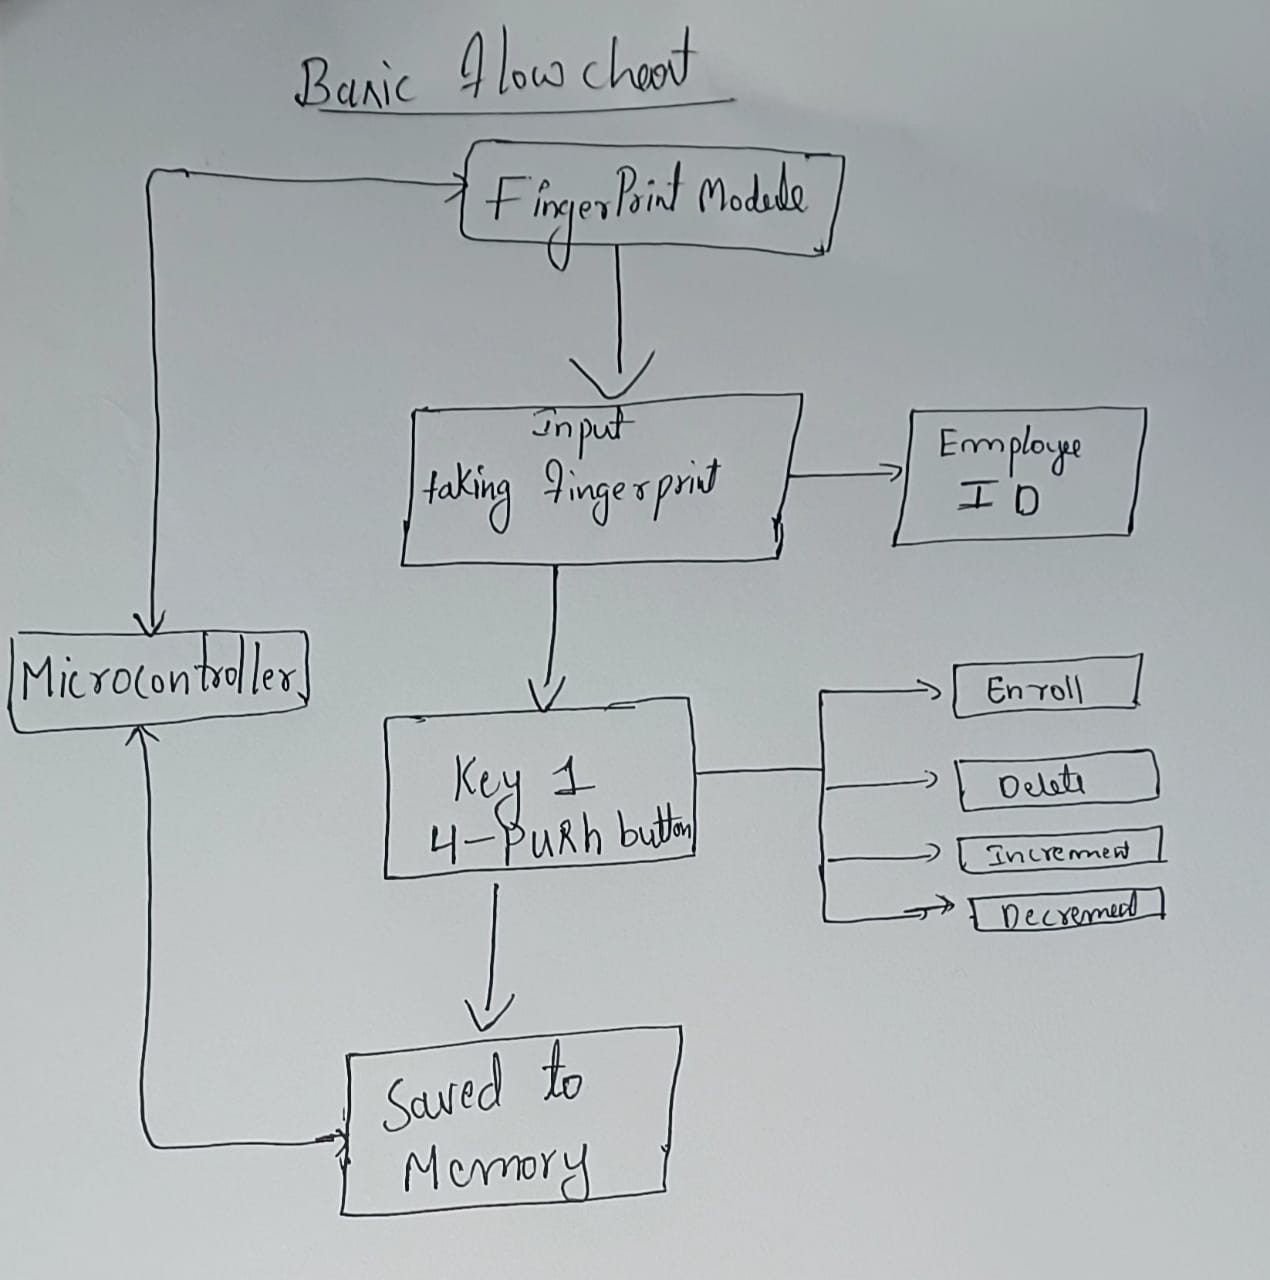 Basic Flowchart
FingerPrint Module
Input
taking fingerprint
Employee
ID
Microcontroller
Key 1
4-Push button
Enroll
Delete
Increment
Decrement
Saved to
Memory